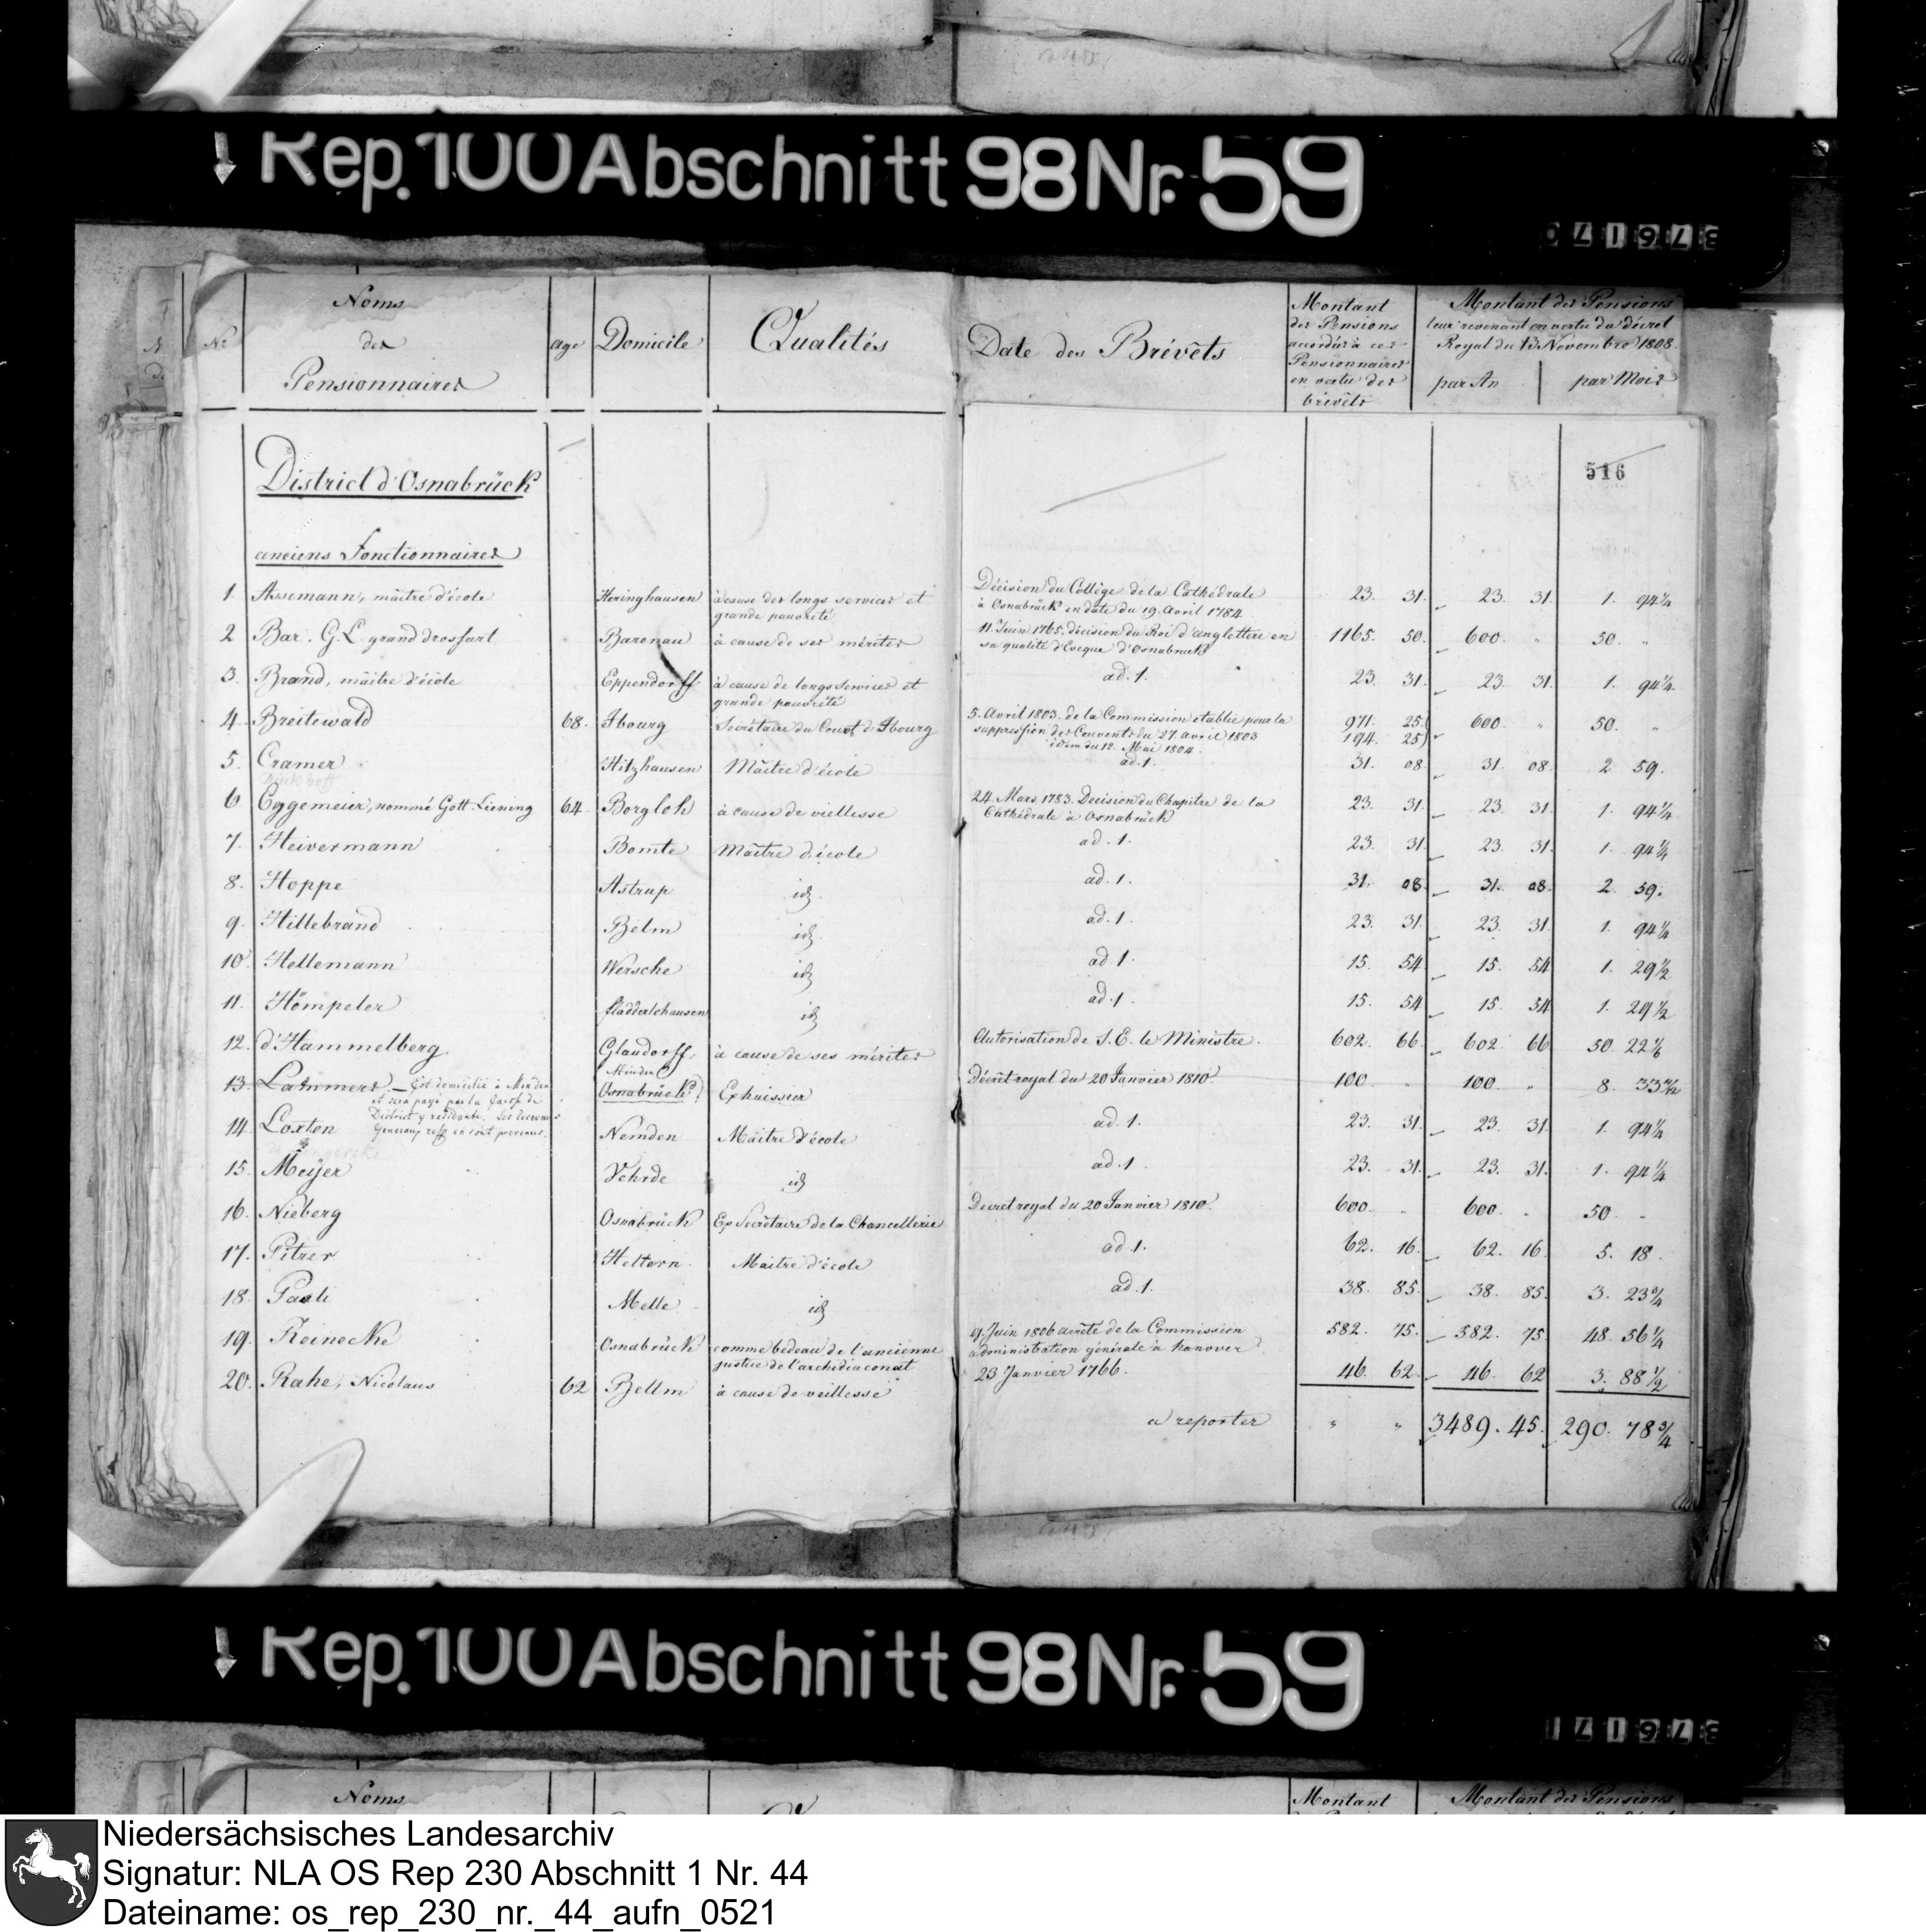 Rep. 100 Abschnitt 98 Nr. 59
376170
No
Noms
des
Pensionnaires
age
Domicile
Qualités
Date des Brévêts
Montant
des Pensions
accordés à ces
Pensionnaires
en vertu des
brévêts
Montant des Pensions
leur revenant en vertu du décret
Royal du 13 Novembre 1808.
par An
par Mois
516
District d'Osnabrück
anciens Fonctionnaires
1. Assemann, maître d'école Heringhausen à cause des longs services et grande pauvreté Décision du Collège de la Cathédrale à Osnabrück en date du 19. Avril 1784. 23. 31. 23. 31. 1. 94¼
2 Bar. G.L. grand drossart Baronau à cause de ses mérites 11. Juin 1765. décision du Roi d'angleterre en sa qualité d'Eveque d'Osnabruck 1165. 50. 600. " 50. "
3. Brand, maitre d'école Eppendorff à cause de longs services et grande pauvreté ad. 1. 23. 31. 23. 31. 1. 94¼.
4. Breitewald 68. Ibourg Secrétaire du Couvt d'Ibourg 5. Avril 1803. de la Commission etablie pour la suppression des Couvents du 27. Avril 1803 idem du 12. Mai 1804. 971. 25. 194. 25 600. " 50. "
5. Cramer Hitzhausen Maître d'école ad. 1. 31. 08. 31. 08. 2 59.
6. Eggemeier, nommé Gott. Liening 64. Borgloh à cause de viellesse 24. Mars 1783. Decision du Chapitre de la Cathédrale à Osnabrück 23. 31. 23. 31. 1. 94¼
7. Heivermann Bomte Maître d'école ad. 1. 23. 31. 23. 31. 1. 94¼
8. Hoppe Astrup id. ad. 1. 31. 08. 31. 08. 2. 59.
9. Hillebrand Belm id. ad. 1. 23. 31. 23. 31. 1. 94¼
10. Hellemann Wersche id. ad. 1. 15. 54. 15. 54 1. 29½
11. Hömpeler id. ad. 1. 15. 54. 15. 54 1. 29½
12. d'Hammelberg Glandorff, à cause de ses mérites Autorisation de S. E. le Ministre. 602. 66. 602 66 50. 22⅙
13. Lammers. — Est domicilié à Minden Minden
Osnabrück Exhuissier Décret royal du 20 Janvier 1810. 100 " 100. " 8.
et sera payé par la
District y
14. Loxten Nemden Maitre d'école ad. 1. 23. 31. 23. 31. 1. 94¼
15. Meÿer Vehrde id. ad. 1. 23. 31. 23. 31. 1. 94¼
16. Nieberg Osnabrück Ex Secrétaire de la Chancellerie Decret royal du 20 Janvier 1810. 600 " 600. " 50 "
17. Pitzer Heltern. Maitre d'école ad. 1. 62. 16. 62. 16. 5. 18.
18. Pauli Melle id. ad. 1. 38. 85. 38. 85. 3. 23¾
19. Reinecke Osnabrück comme bedeau de l'ancienne justice de l'archidiaconat 9. Juin 1806 arrêté de la Commission administration générale à hanover 582. 75. 582. 75. 48. 56¼
20. Rahe, Nicolaus 62 Bellm à cause de veillesse 23 Janvier 1766. 46. 62. 46. 62 3. 88½
à reporter " " 3489. 45. 290. 78¾
Rep. 100 Abschnitt 98 Nr. 59
376171
Noms
Montant
Montant des Pensions
Niedersächsisches Landesarchiv
Signatur: NLA OS Rep 230 Abschnitt 1 Nr. 44
Dateiname: os_rep_230_nr._44_aufn_0521